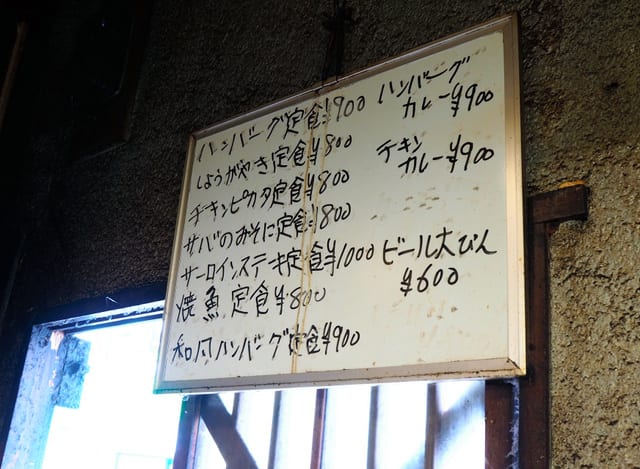 ハンバーグ定食¥900
しょうがやき定食¥800
チキンピカタ定食¥800
サバのみそに定食¥800
サーロインステーキ定食¥1000
焼魚定食¥800
和風ハンバーグ定食¥900
ハンバーグ
カレー¥900
チキン
カレー¥900
ビール大びん
¥600